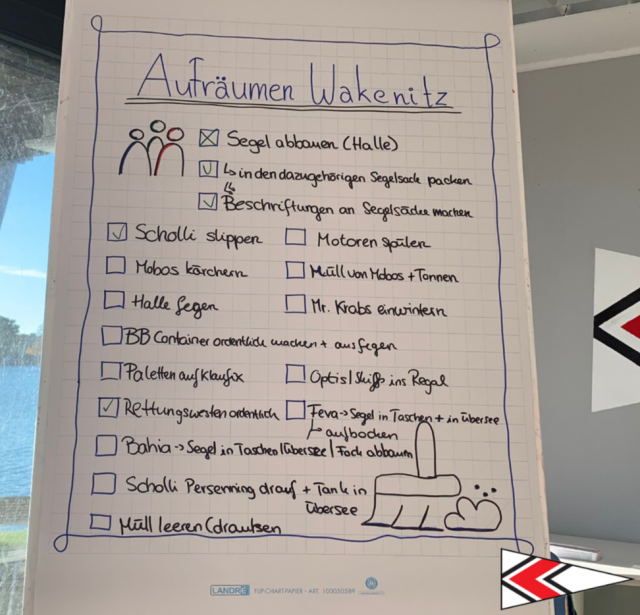 Aufräumen Wakenitz
Segel abbauen (Halle)
↳ in den dazugehörigen Segelsack packen
↳ Beschriftungen an Segelsäcke machen
Scholli slippen
Motoren spülen
Mobos kärchern
Müll von Mobos + Tonnen
Halle fegen
Mr. Krabs einwintern
BB Container ordentlich machen + ausfegen
Paletten auf Klaufix
Optis/Skiffs ins Regal
Rettungswesten ordentlich
Feva -> Segel in Taschen + in Übersee
↳ aufbocken
Bahia -> Segel in Taschen/Übersee/Fock abbauen
Scholli Persenning drauf + Tank in
Übersee
Müll leeren (draußen
LANDRÉ FLIP-CHART-PAPIER - ART. 100050589